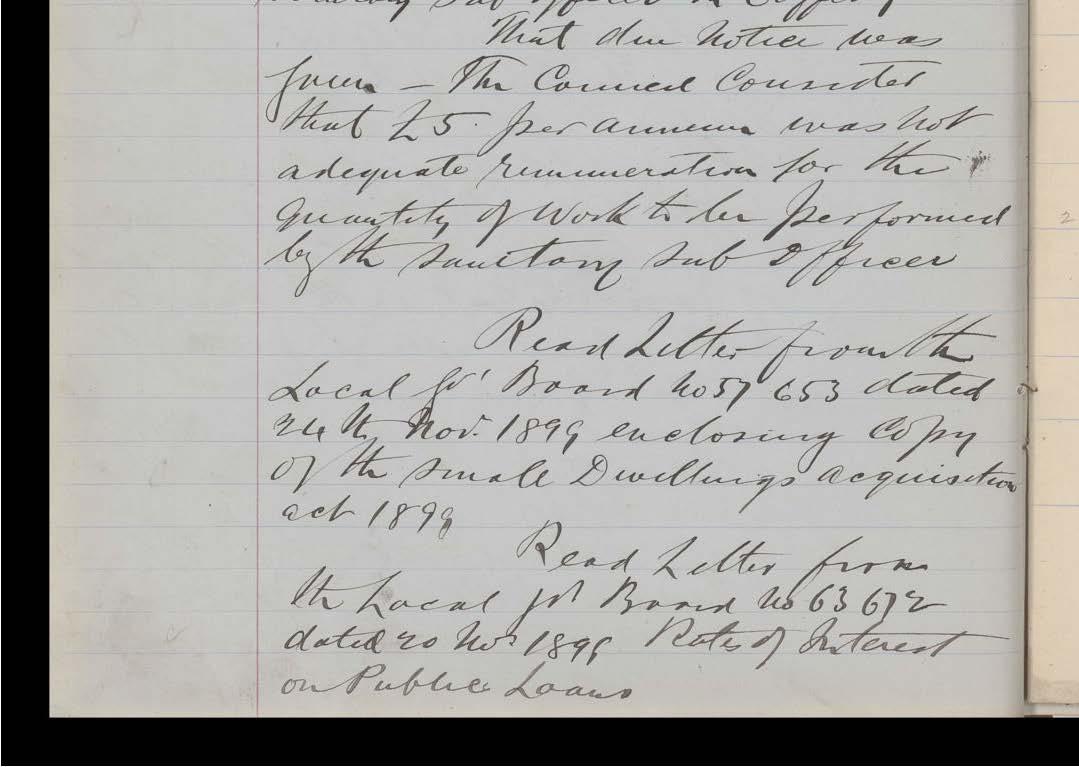 sub officer
That due Notice was
given – The Council Consider
that £5 per annum was not
adequate remuneration for the
Quantity of Work to be performed
by the sanitary sub Officer
Read Letter from the
Local Gvt Board No 57 653 dated
24th Nov. 1899 enclosing Copy
of the small Dwellings acquisition
act 1899
Read Letter from
the Local Gvt Board No 63 672
dated 20 Nov 1899 Rates of Interest
on Public Loans